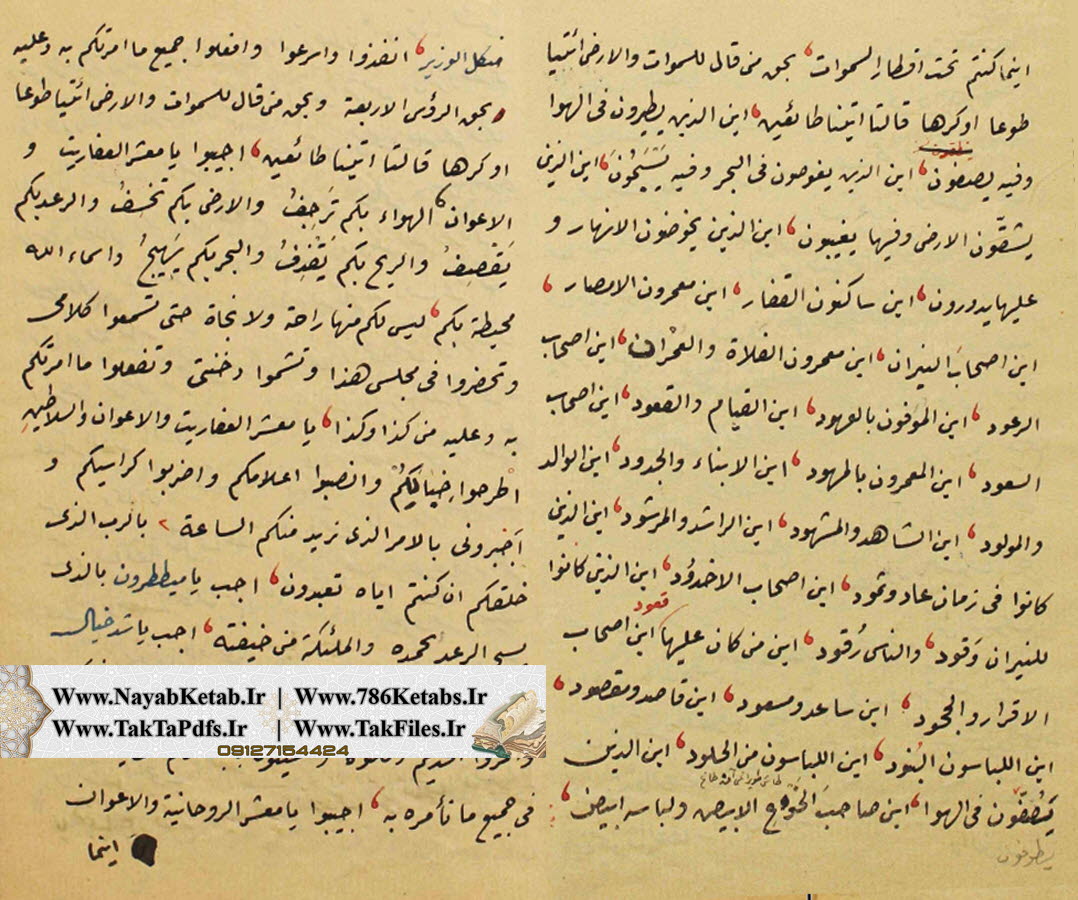 اينما كنتم تحت اقطار السموات، بحق من قال للسموات والارض ائتيا
طوعا او كرها قالتا اتينا طائعين، اين الذين يطيرون فى الهوا
وفيه يصفون، اين الذين يغوصون فى البحر وفيه يسبحون، اين الذين
يشقّون الارض وفيها يغيبون، اين الذين يخوضون الانهار و
عليها يدورون، اين ساكنون القفار، اين معمرون الامصار،
اين اصحابَ النيران، اين معمرون الفلاة والعمران، اين اصحاب
الرعود، اين الموفون بالعهود، اين القيام والقعود، اين اصحاب
السعود، اين المعمرون بالمهود، اين الابناء والجدود، اين الوالد
والمولود، اين الشاهد والمشهود، اين الراشد والمرشود، اين الذين
كانوا فى زمان عاد وثمود، اين اصحاب الاخدوُد، اين الذين كانوا
للنيران وَقود، والناس رُقود، اين من كان عليها قعود، اين اصحاب
الاقرار والجحود، اين ساعد ومسعود، اين قاصد ومقصود،
اين اللباسون البُنود، اين اللباسون من الجلود، اين الذين
فى الهوا، اين صاحبَ الابيض ولباسه ابيض،
الوزير، انفذوا واسرعوا وافعلوا جميع ما امرتكم به وعليه
وبحق الرؤس الاربعة وبحق من قال للسموات والارض ائتيا طوعا
او كرها قالتا اتينا طائعين، اجيبوا يا معشر العفاريت و
الاعوان، الهواء بكم تَرجِفُ والارض بكم تخسفُ والرعد بكم
يَقصِفُ والريح بكم يَقذِفُ والبحر بكم يَهِيجُ واسماء الله
محيطة بكم، ليس لكم منها راحة ولا نجاة حتى تسمعوا كلامى
وتحضروا فى مجلسى هذا وتشموا دخنتى وتفعلوا ما امرتكم
به وعليه من كذا وكذا، يا معشر العفاريت والاعوان والسلاطين
اطرحوا وانصبوا اعلامكم واضربوا كراسيكم و
اَخبرونى بالامر الذى نريد منكم الساعة، بالرب الذى
خلقكم ان كنتم اياه تعبدون، اجب يا ميططرون بالذى
يسبح الرعد بحمده والملئكة من خيفته، اجب يا
فى جميع ما تأمره به، اجيبوا يا معشر الروحانية والاعوان
اينما
Www.NayabKetab.Ir | Www.786Ketabs.Ir
Www.TakTaPdfs.Ir | Www.TakFiles.Ir
09127154424